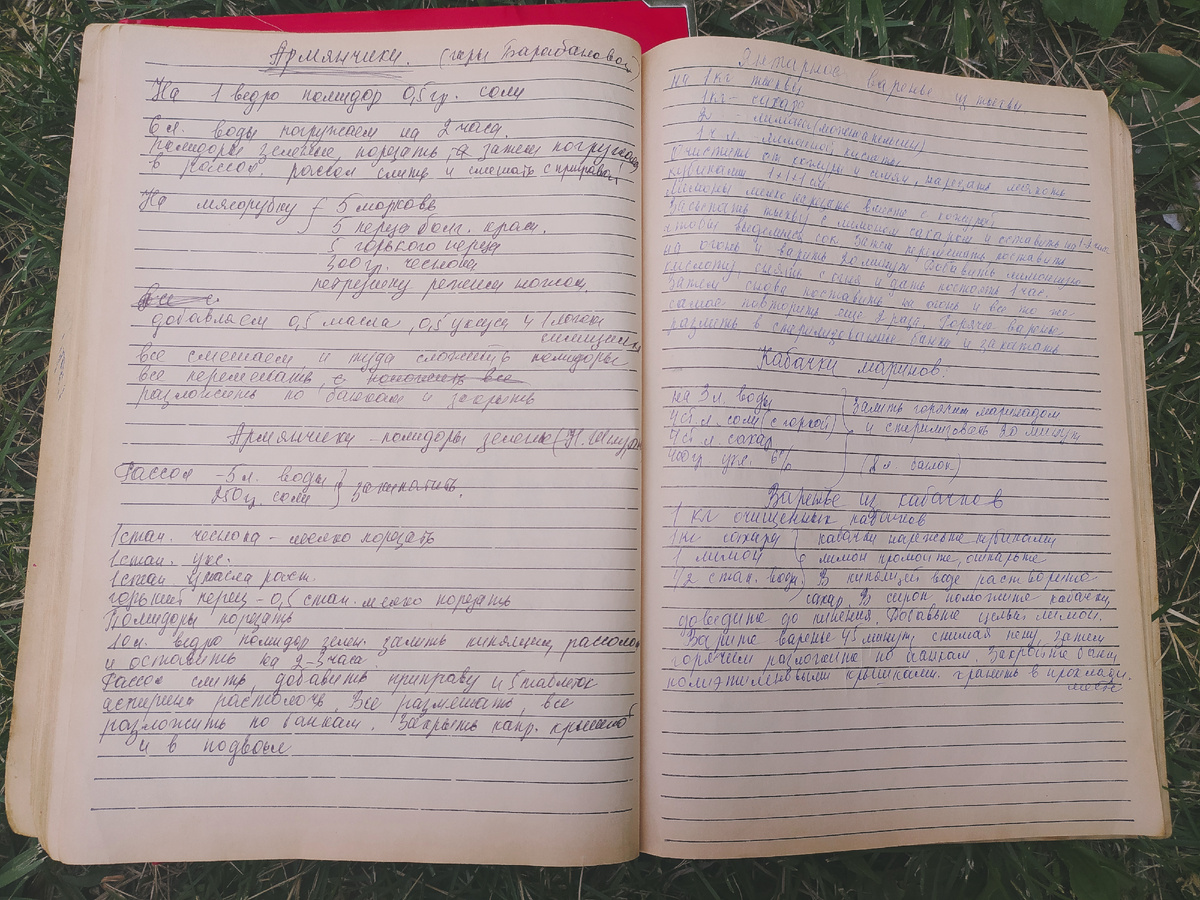 Армянчики. (Барабановой)
На 1 ведро помидор 0,5 гр. соли
6 л. воды погружаем на 2 часа.
Помидоры зеленые, порезать затем погружаем
в рассол. рассол слить и смешать с приправой
На мясорубку { 5 морковь
5 перца болг. красн.
5 горького перца
300 гр. чеснока
петрушку режем ножом.
добавляем 0,5 масла, 0,5 уксуса и 1 ложки
все смешаем и туда сложить помидоры
все перемешать, с положить все
разложить по банкам и закрыть
Армянчики - помидоры зелены (Н.
Рассол - 5 л. воды
250 гр. соли } закипятить.
1 стан. чеснока - мелко порезать
1 стан. укс.
1 стан масла раст.
горький перец - 0,5 стан. мелко порезать
Помидоры порезать
10 л. ведро помидор зелен. залить кипящим рассолом
и оставить на 2-3 часа.
Рассол слить, добавить приправу и 5 таблеток
аспирина растолочь, Все размешать, все
разложить по банкам. Закрыть капр. крышкой
и в подвал
Янтарное варенье из тыквы
на 1 кг тыквы
1 кг - сахара
2 - лимона (можно апельсин)
1 ч л. - лимонной кислоты
Очистить от кожуры и семян, нарезать мякоть
кубиками 1×1×1 см.
Лимоны мелко нарезать вместе с кожурой.
Засыпать тыкву с лимоном сахаром и оставить на час
чтобы выделился сок. Затем перемешать поставить
на огонь и варить 20 минут. Добавить лимонную
кислоту, снять с огня и дать постоять 1 час.
Затем снова поставить на огонь и все то же
самое повторить еще 2 раза. Горячее варенье
разлить в стерилизованные банки и закатать
Кабачки маринов.
на 3 л. воды
4 ст. л. соли (с горкой)
7 ст. л. сахар
400 гр укс. 6%
Залить горячим маринадом
и стерилизовать 20 минут
(2 л. банок)
Варенье из кабачков
1 кг очищенных кабачков
1 кг сахару { кабачки нарежьте кубиками
1 лимон лимон промойте, ошпарьте
1/2 стан. воды В кипящей воде растворите
сахар, В сироп положите кабачки,
доведите до кипения. Добавьте целый лимон.
Варите варенье 45 минут, снимая пену, затем
горячем разложите по банкам. Закройте банки
полиэтиленовыми крышками. хранить в прохлад.
месте